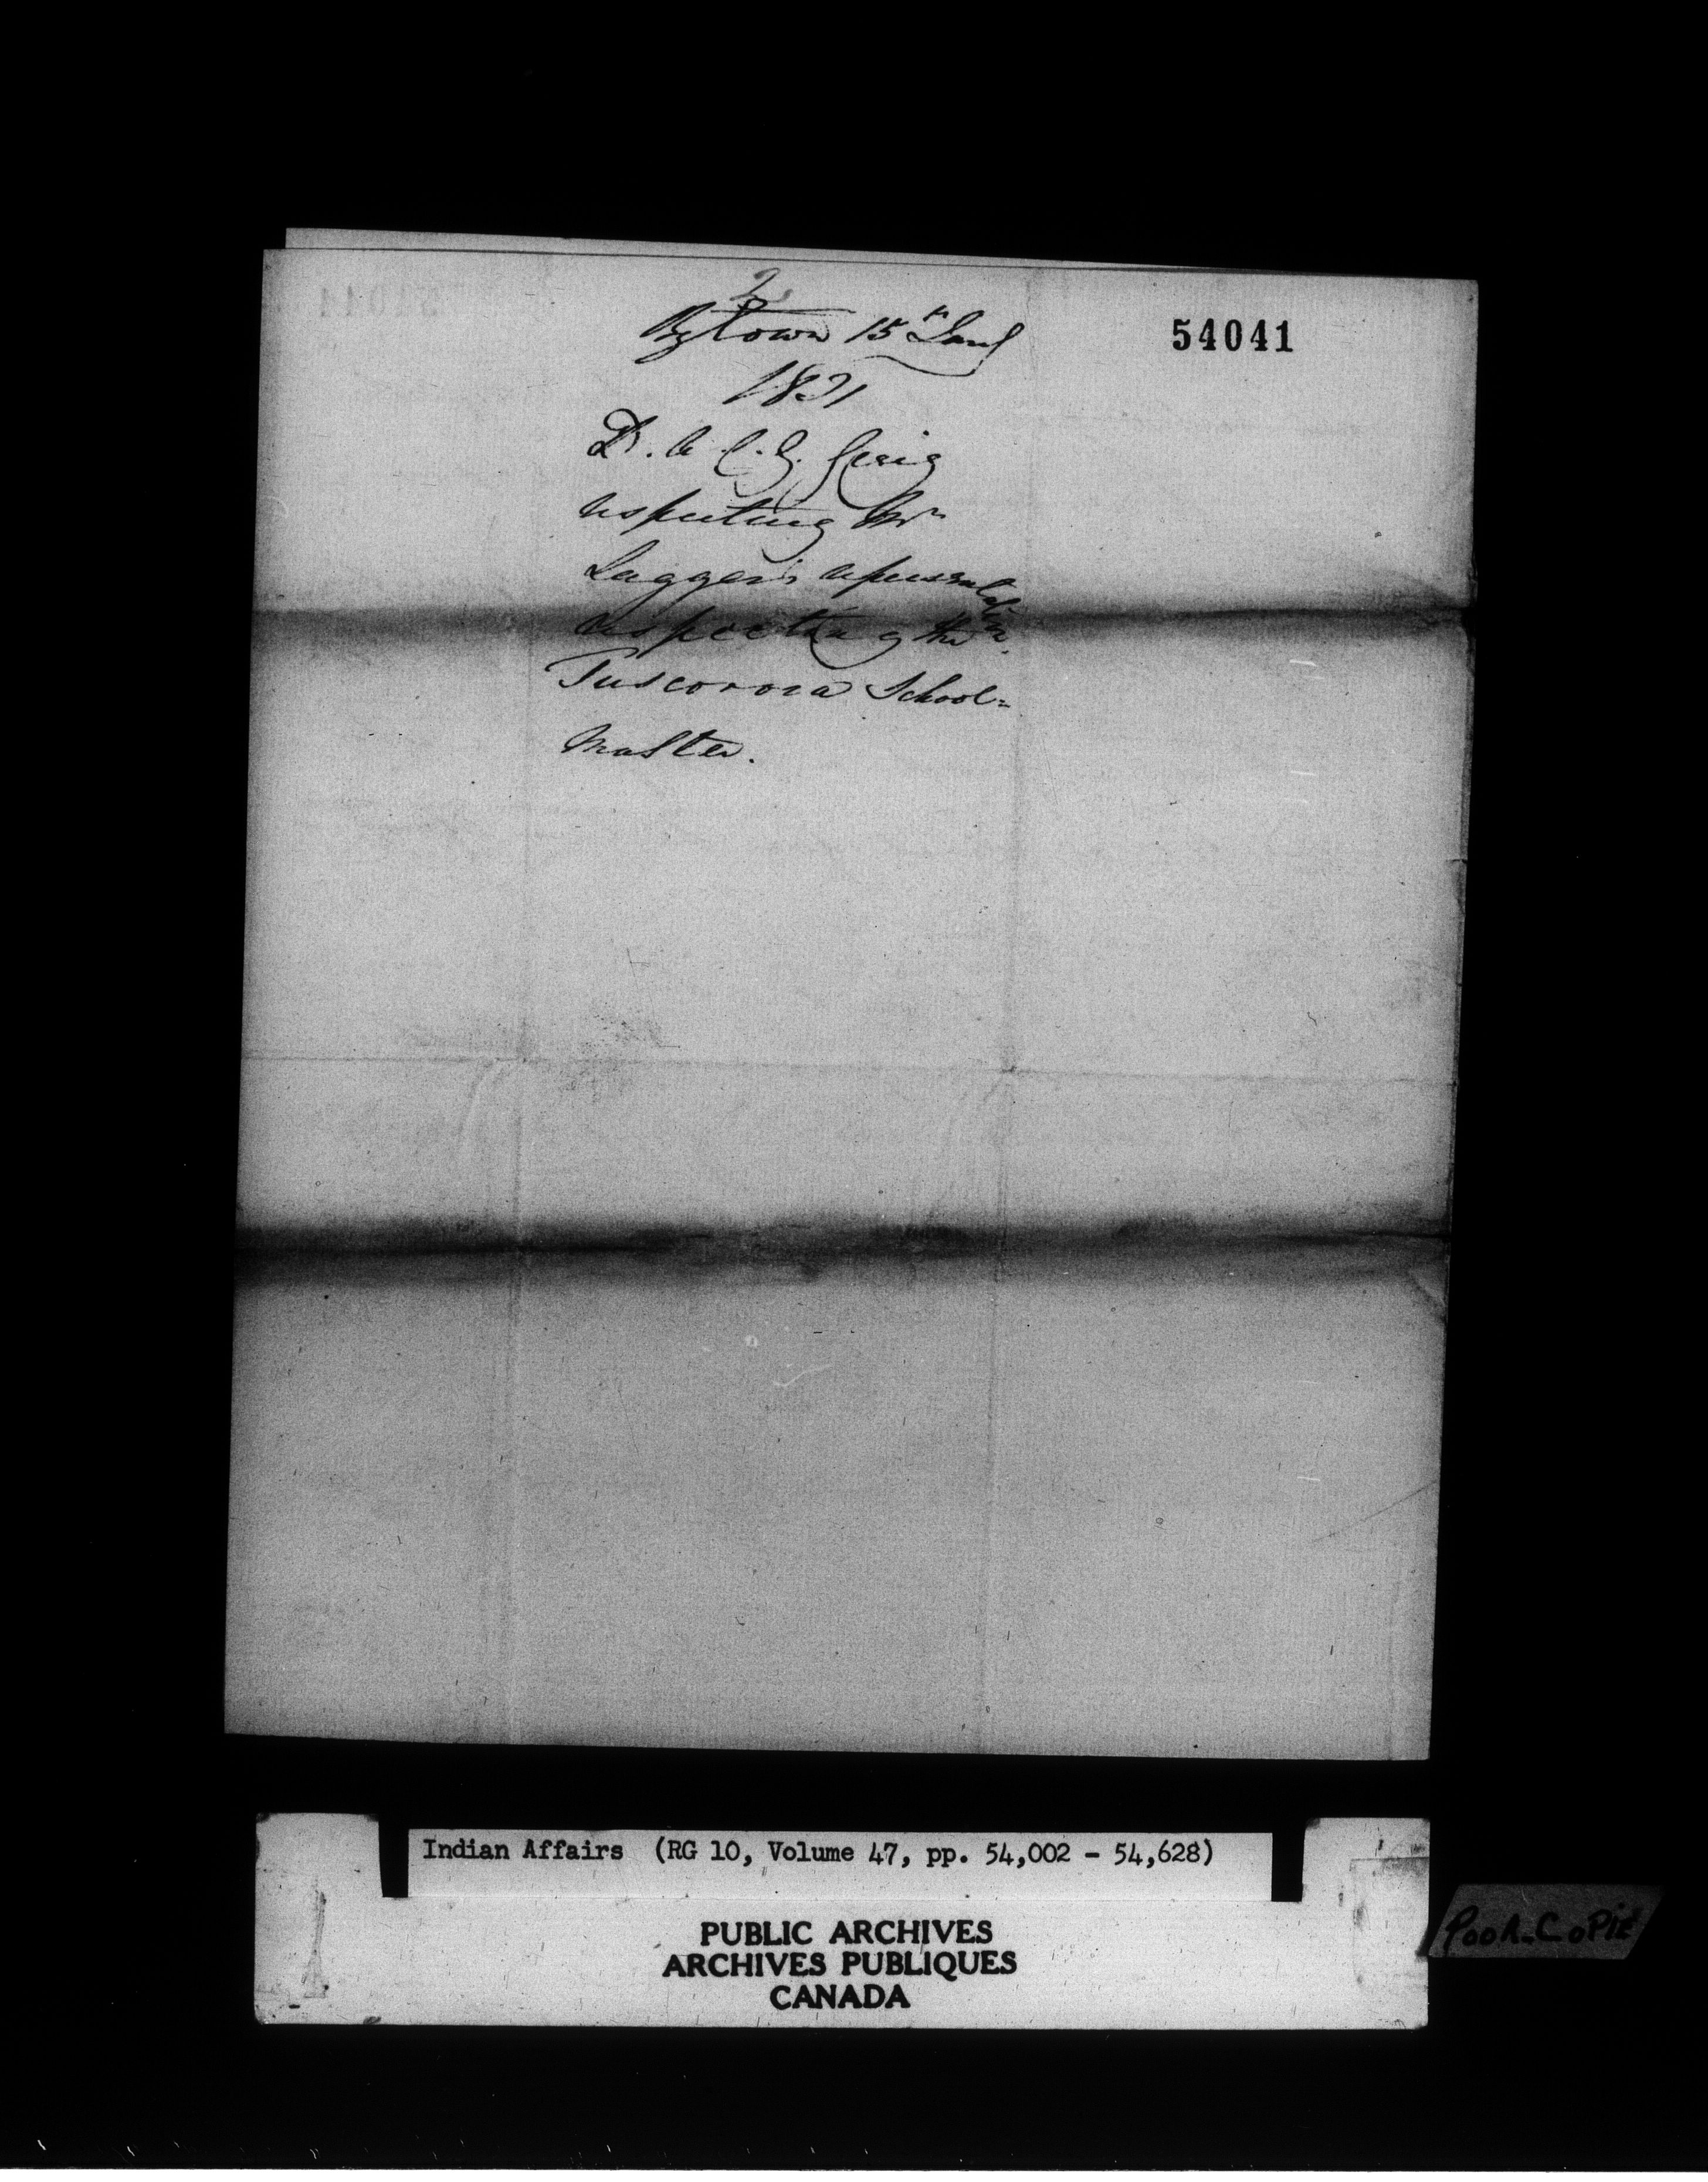 2
54041
Bytown 15th Jany
1831
D. A. C. G. Craig
respecting Mr
Lugger's representation
respecting the
Tuscorora School=
Master.
Indian Affairs (RG 10, Volume 47, pp. 54,002 - 54,628)
PUBLIC ARCHIVES
ARCHIVES PUBLIQUES
CANADA
POOR COPIE